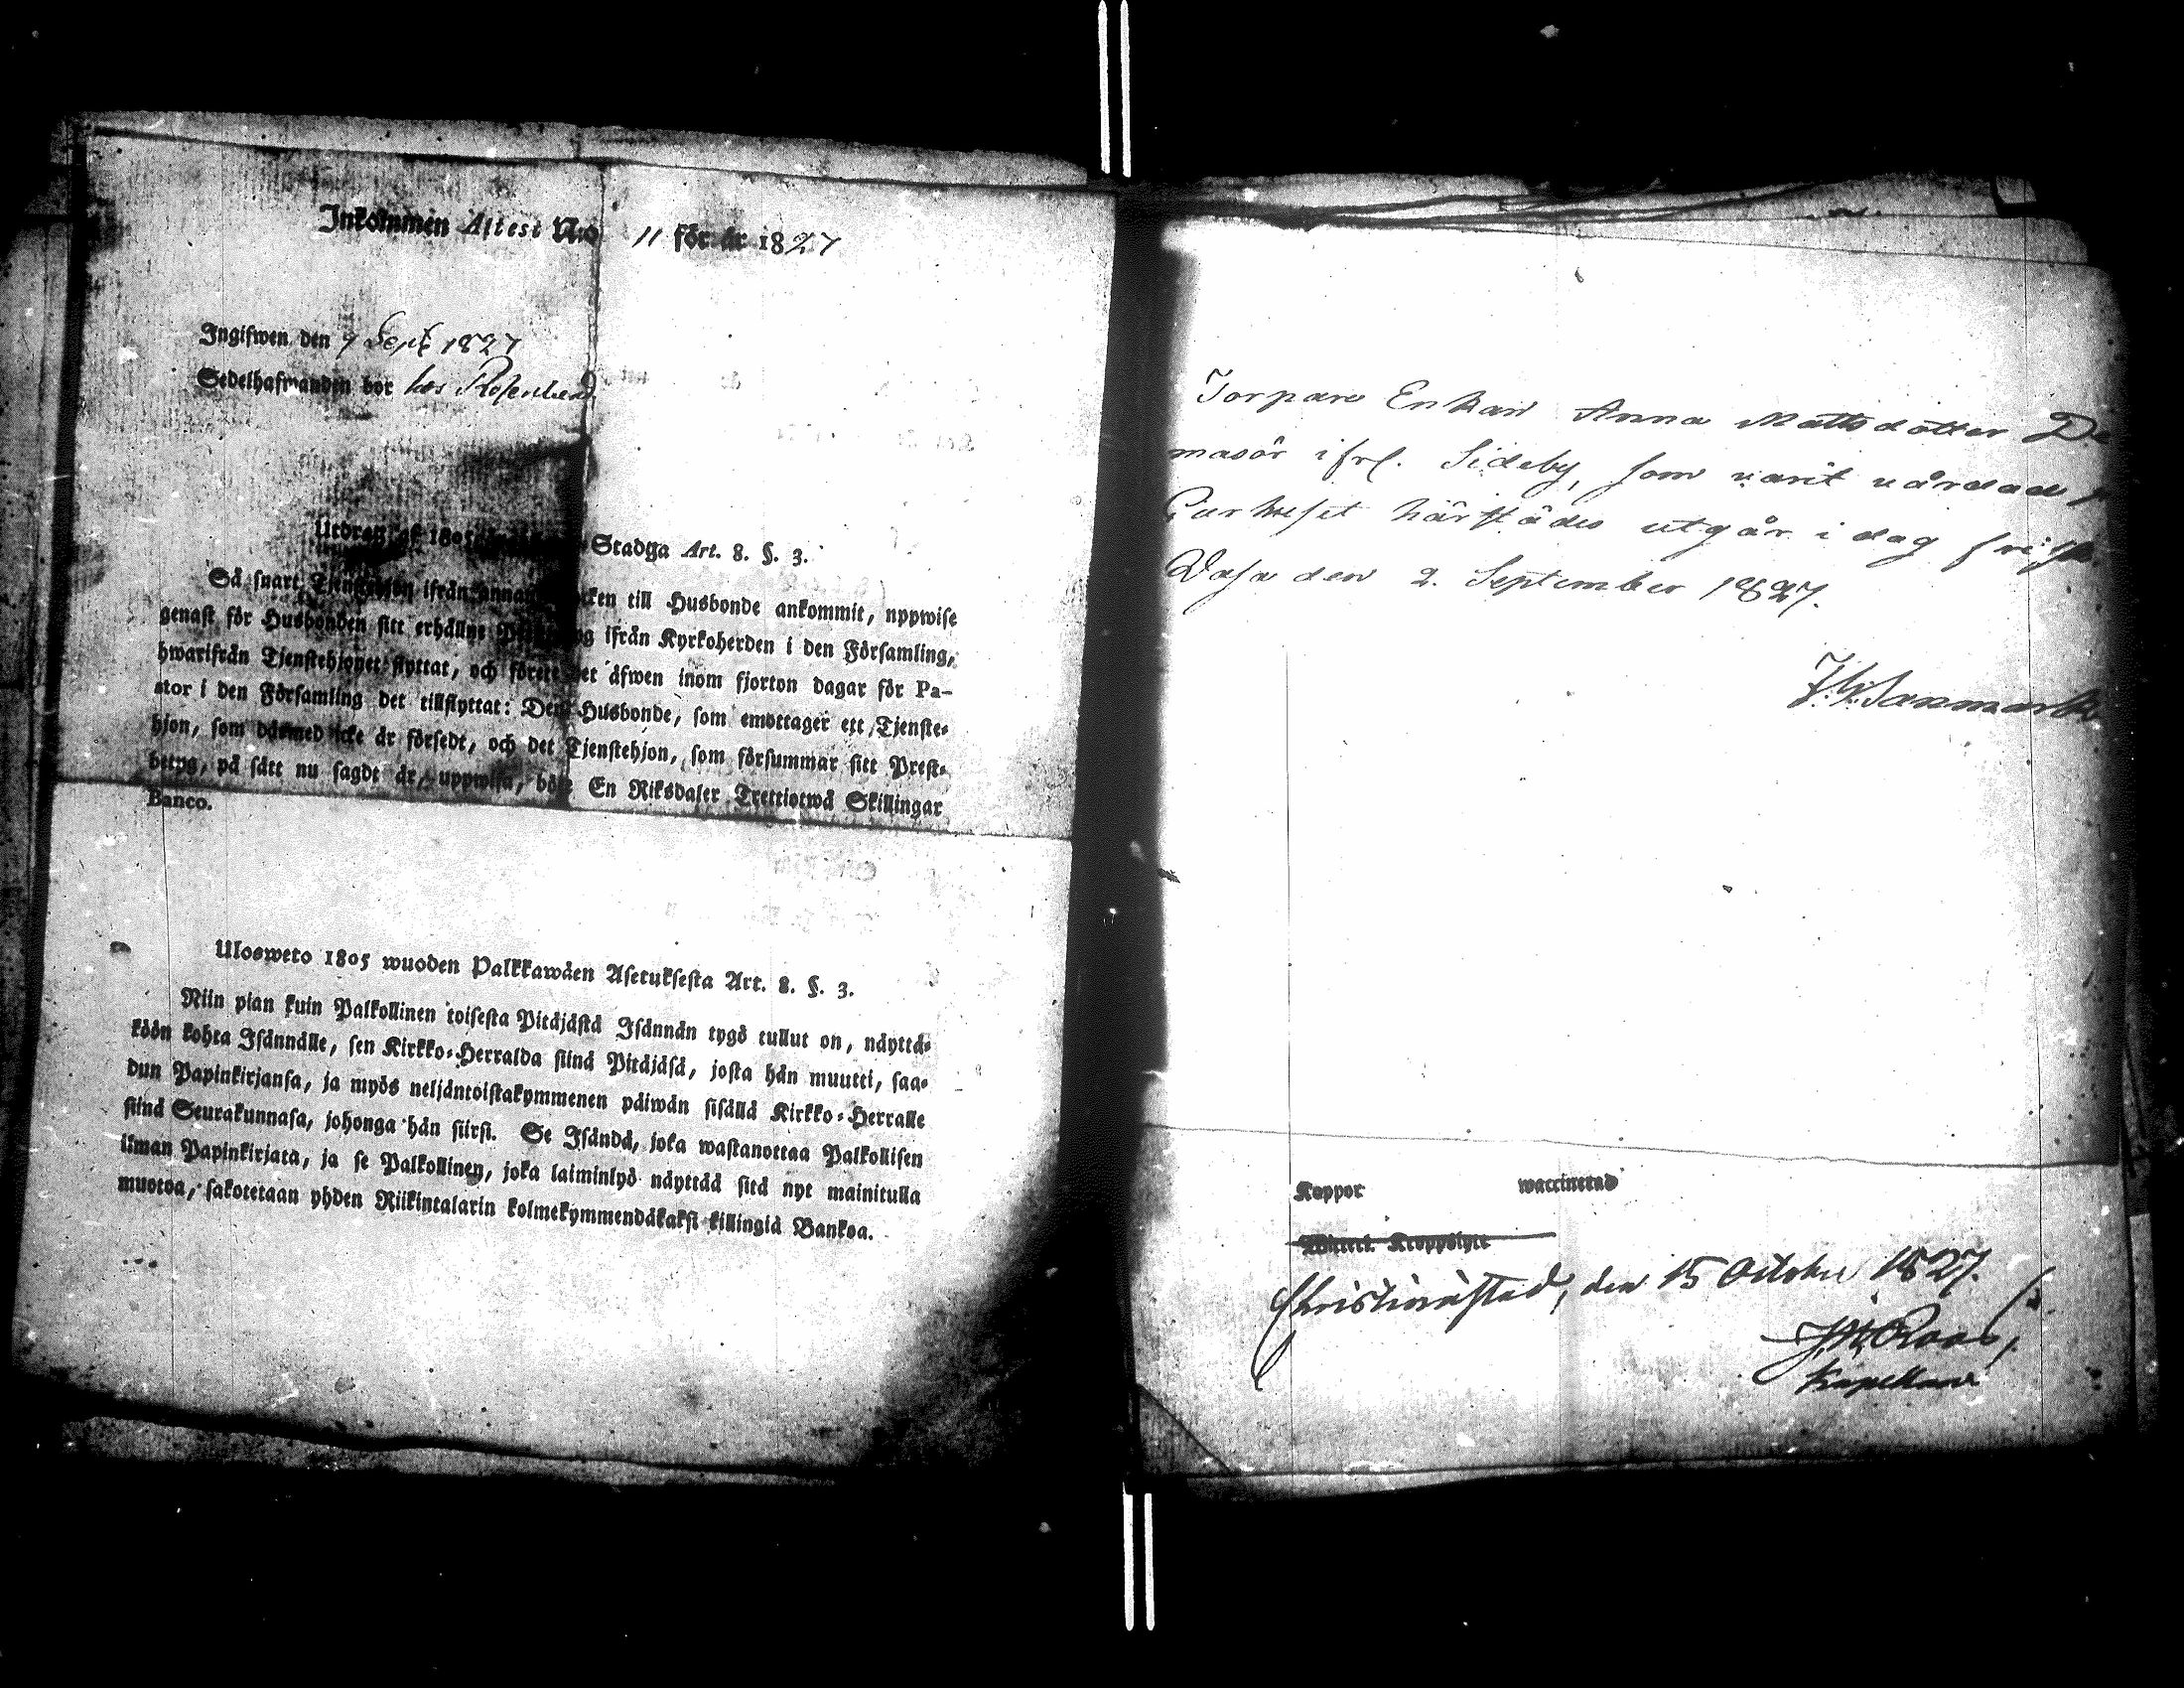 Inkommen Attest N:o 11 för år 1827
Ingifwen den 9 Sept 1827
Sedelhafwanden bor hos
Utdrag af 1805 Stadga Art. 8. §. 3.
Så snart Tjenstehjon ifrån annan till Husbonde ankommit, uppwise
genast för Husbonden sitt erhållne ifrån Kyrkoherden i den Församling,
hwarifrån Tjenstehjonet flyttat, och förete det äfwen inom fjorton dagar för Pa-
stor i den Församling det tillflyttat: Den Husbonde, som emottager ett Tjenste-
hjon, som dermed icke är försedt, och det Tjenstehjon, som försummar sitt Prest-
betyg, på sätt nu sagdt är, uppwisa, böte En Riksdaler Trettiotwå Skillingar
Banco.
Ulosweto 1805 wuoden Palkkawäen Asetuksesta Art. 8. §. 3.
Niin pian kuin Palkollinen toisesta Pitäjästä Isännän tygö tullut on, näyttä-
köön kohta Isännälle, sen Kirkko-Herralda siinä Pitäjäsä, josta hän muutti, saa-
dun Papinkirjansa, ja myös neljäntoistakymmenen päiwän sisällä Kirkko-Herralle
siinä Seurakunnasa, johonga hän siirsi. Se Isändä, joka wastanottaa Palkollisen
ilman Papinkirjata, ja se Palkollinen, joka laiminlyö näyttää sitä nyt mainitulla
muotoa, sakotetaan yhden Riikintalarin kolmekymmendäkaksi killingiä Bankoa.
Torpare Enkan Anna Mattsdotter
masör ifrl. Sideby, som varit vårdad
Curhuset härstädes utgår i dag
Vasa den 2. September 1827.
Koppor waccinerad
Christinæstad, den 15 October 1827.
Kapellan